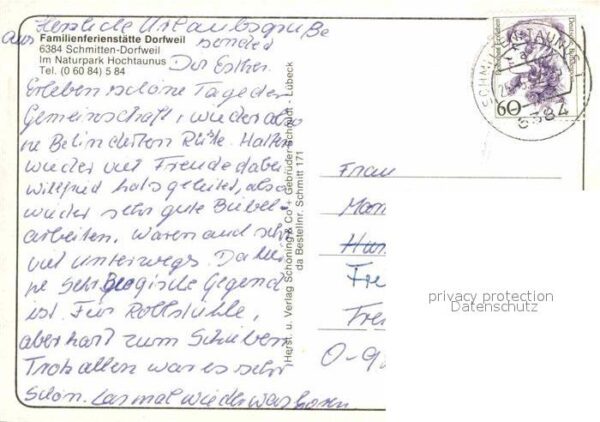 Herzliche Urlaubsgrüße
aus Familienferienstätte Dorfweil
6384 Schmitten-Dorfweil
Im Naturpark Hochtaunus
Tel. (0 60 84) 5 84
sendet
Dir Esther.
Erleben schöne Tage der
Gemeinschaft, wieder also
ne Behinderten Rüste. Halten
wieder viel Freude dabei
Wilfried hats geleitet, also
wieder sehr gute Bibel-
arbeiten. Waren auch sehr
viel unterwegs. Da hier
ne sehr Gegend
ist. Für Rollstühle,
aber hart zum Schieben
Trotz allen war es sehr
schön. Las mal wieder was hören
Herst. u. Verlag Schöning & Co + Gebrüder Schmidt - Lübeck
da Bestellnr. Schmitt 171
60
Deutsche Bundespost
SCHMITTEN, TAUNUS
6384
Frau
Fre
O-9
privacy protection
Datenschutz